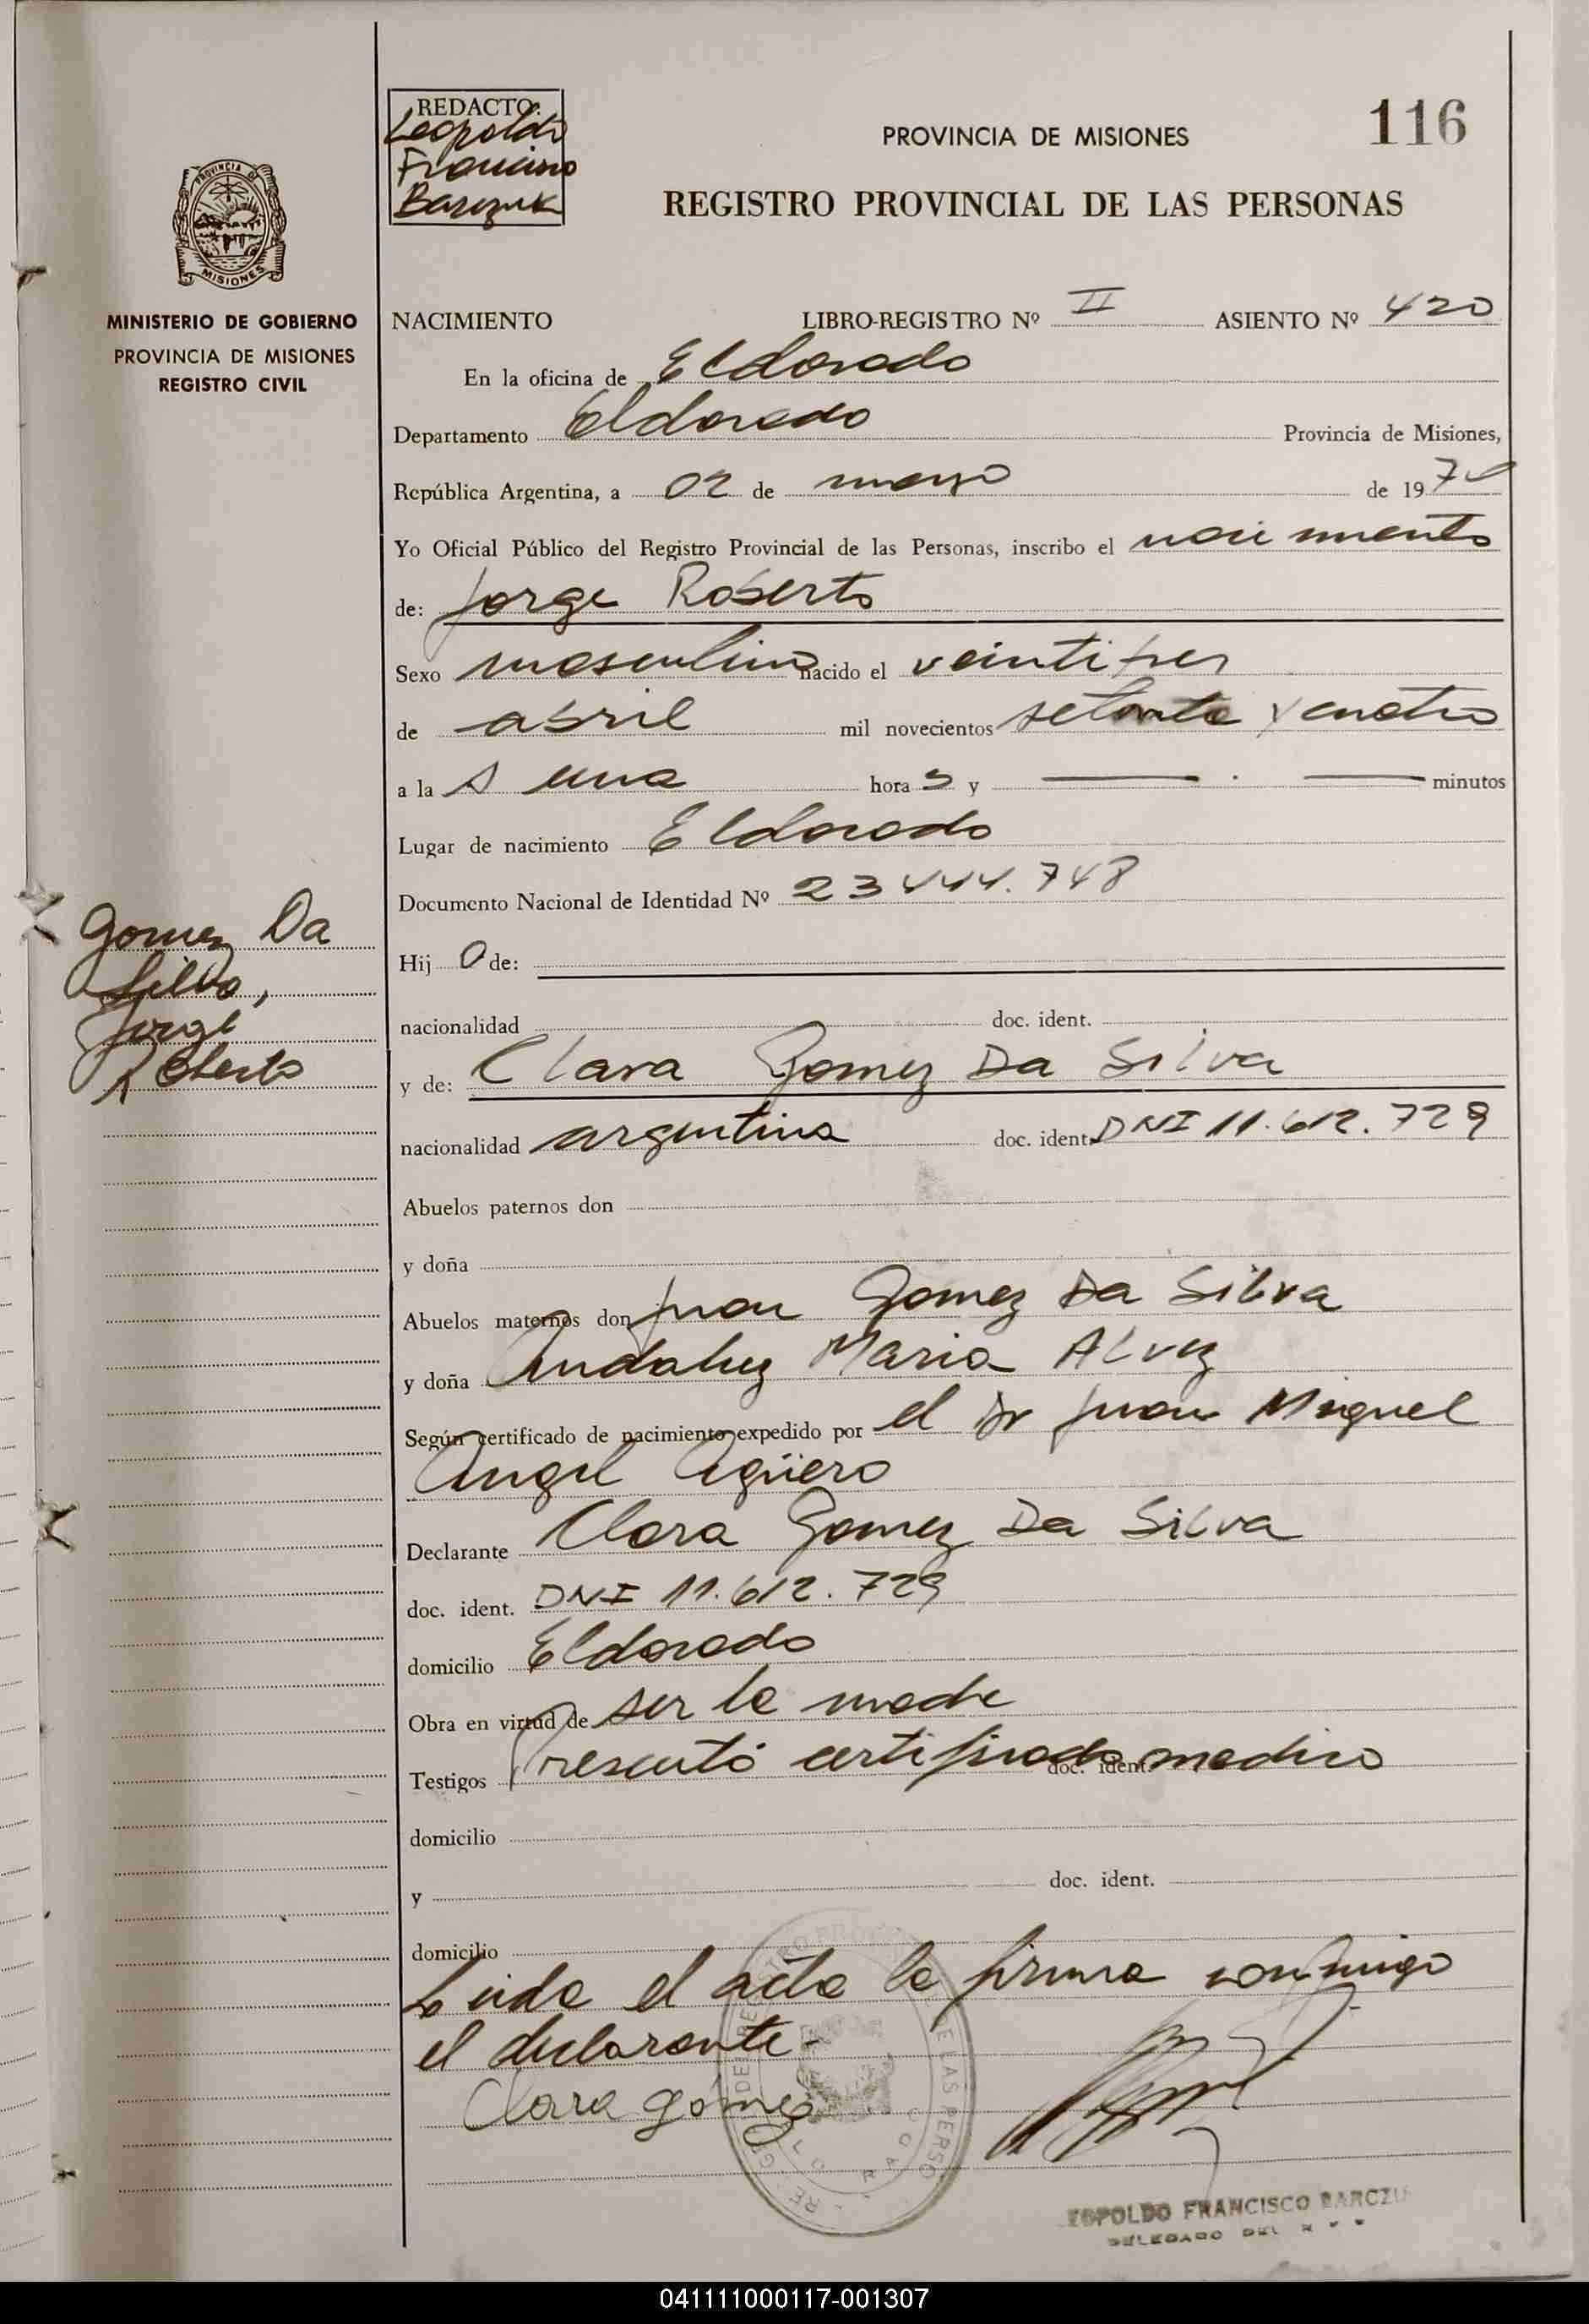 REDACTO:
Leopoldo
Francisco
Barczuk
PROVINCIA DE MISIONES
116
REGISTRO PROVINCIAL DE LAS PERSONAS
PROVINCIA DE
MISIONES
MINISTERIO DE GOBIERNO
PROVINCIA DE MISIONES
REGISTRO CIVIL
NACIMIENTO LIBRO-REGISTRO Nº II ASIENTO Nº 420
En la oficina de Eldorado
Departamento Eldorado Provincia de Misiones,
República Argentina, a 02 de mayo de 19 74
Yo Oficial Público del Registro Provincial de las Personas, inscribo el nacimiento
de: Jorge Roberto
Sexo masculino nacido el veintitres
de abril mil novecientos setenta y cuatro
a la s una hora s y minutos
Lugar de nacimiento Eldorado
Documento Nacional de Identidad Nº 23444.748
Gomez Da
Silva,
Jorge
Roberto
Hij o de:
nacionalidad doc. ident.
y de: Clara Gomez Da Silva
nacionalidad argentina doc. ident. DNI 11.612.729
Abuelos paternos don
y doña
Abuelos maternos don Juan Gomez Da Silva
y doña Andaluz Maria Alvez
Según certificado de nacimiento expedido por el Dr Juan Miguel
Angel Agüero
Declarante Clara Gomez Da Silva
doc. ident. DNI 11.612.729
domicilio Eldorado
Obra en virtud de ser la madre
Testigos Presentó certificado medico doc. ident.
domicilio
y doc. ident.
domicilio
Leida el acta la firma conmigo
el declarante-
Clara gómez
LEOPOLDO FRANCISCO BARCZU
DELEGADO DEL
041111000117-001307